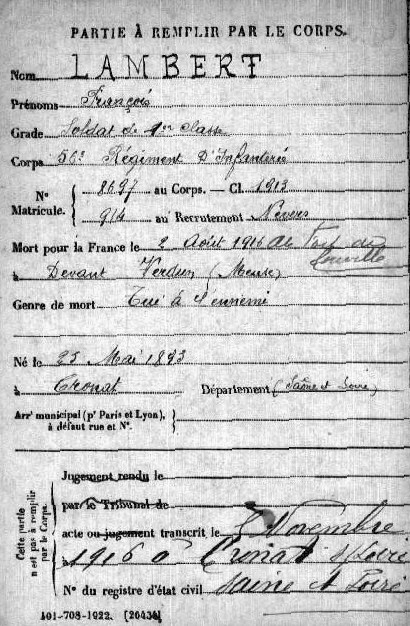 PARTIE À REMPLIR PAR LE CORPS.
Nom LAMBERT
Prénoms François
Grade Soldat de 1re classe
Corps 56e Régiment D'Infanterie
Nº Matricule. { 8697 au Corps. — Cl. 1913
914 au Recrutement Nevers
Mort pour la France le 2 Août 1916 au Fort de
Souville
à Devant Verdun (Meuse)
Genre de mort Tué à l'ennemi
Né le 25 Mai 1893
à Cronat Département (Saône et Loire)
Arrt municipal (pr Paris et Lyon),
à défaut rue et Nº.
Cette partie n'est pas à remplir par le Corps.
Jugement rendu le
par le Tribunal de
acte ou jugement transcrit le 5 Novembre
à 1916 à Cronat s/Loire
Nº du registre d'état civil Saône et Loire
101-708-1922. [26434]